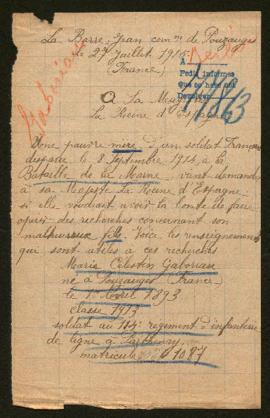 La Barre-Jean com^ne de Pouzauges
le 27 juillet 1915
(France)
A
Pedir informes
que se han
à La
La Reine d'Espagne
Une pauvre mère d'un soldat Français
disparu le 8 Septembre 1914, à la
Bataille de la Marne, vient demander
à sa Majesté La Reine d'Espagne
si elle voudrait avoir la bonté de faire
opérer des recherches concernant son
malheureux fils. Voici les renseignements
qui sont utiles à ces recherches
Marie Célestin Gaborieau
né à Pouzauges France
le 1 Avril 1893
classe 1913
soldat au 114e regiment d'infanterie
de ligne à Parthenay
matricule 1087